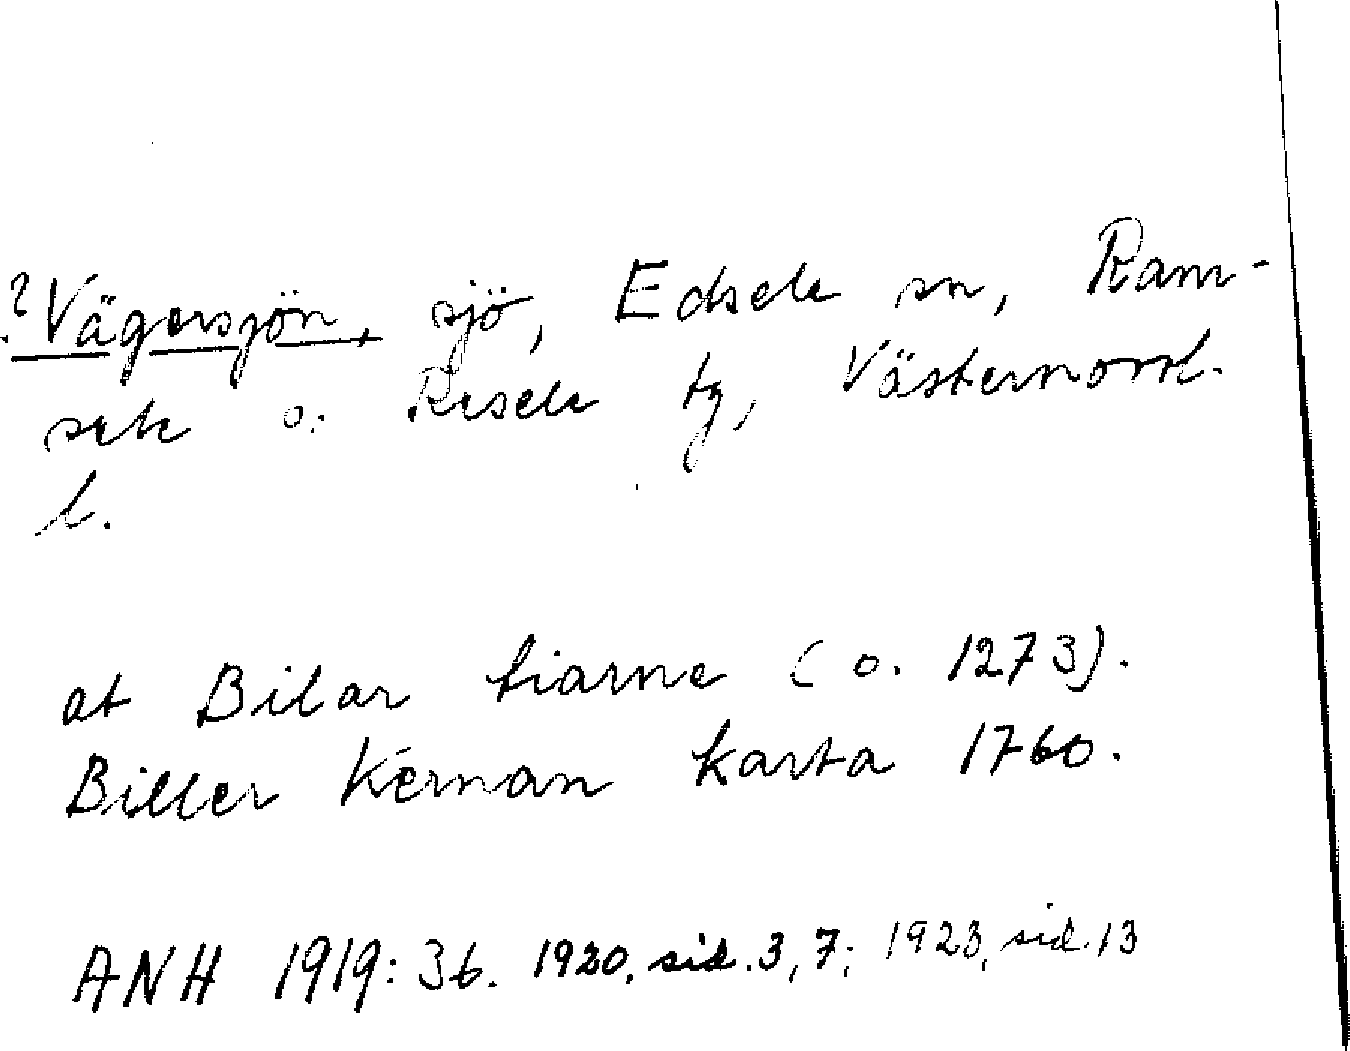 ?Vägersjön, sjö, Edsele sn, Ram-
sele o. Resele tg, Västernorrl.
l.
at Bilar tiarne (o. 1273).
Biller Kernan karta 1760.
ANH 1919: 36. 1920, sid. 3, 7; 1923, sid. 13